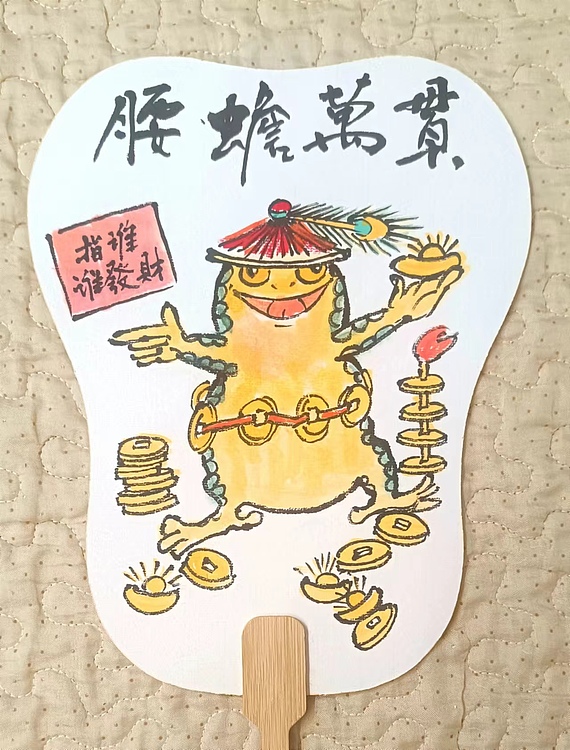 腰蟾萬貫
指誰
誰發財